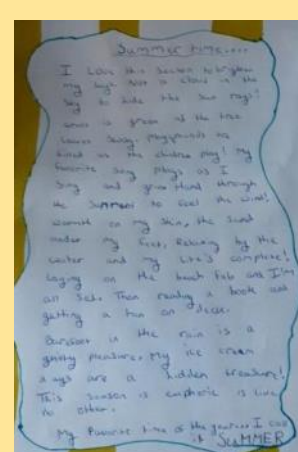 Summer time....
I Love this season to brighten
my days. Not a cloud in the
sky to hide the sun rays!
is green as the tree
leaves sway. Playgrounds are
as the children play! My
favorite song plays as I
sing and grin. through
the Summer to feel the wind!
warmth on my skin, the sand
under my feet. Relaxing by the
water and my life's complete!
Laying on the beach and I'm
all set. Then reading a book and
getting a tan on deck.
in the rain is a
guilty pleasure. My ice cream
days are a hidden treasure!
This season is euphoric is like
no other.
My favorite time of the year I call
it SUMMER